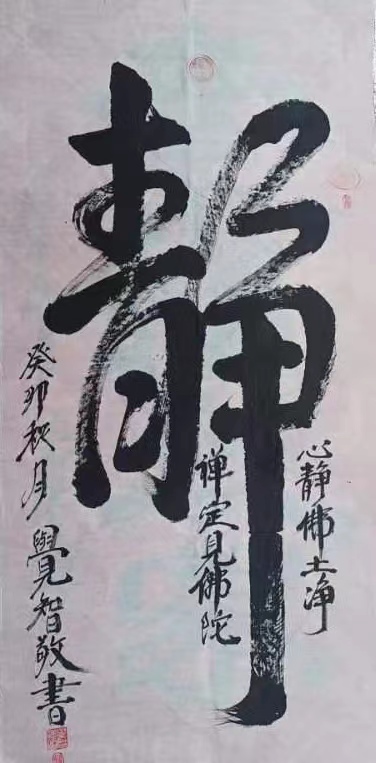 靜
心静佛土净
禅定見佛陀
癸卯秋月
覺智敬書